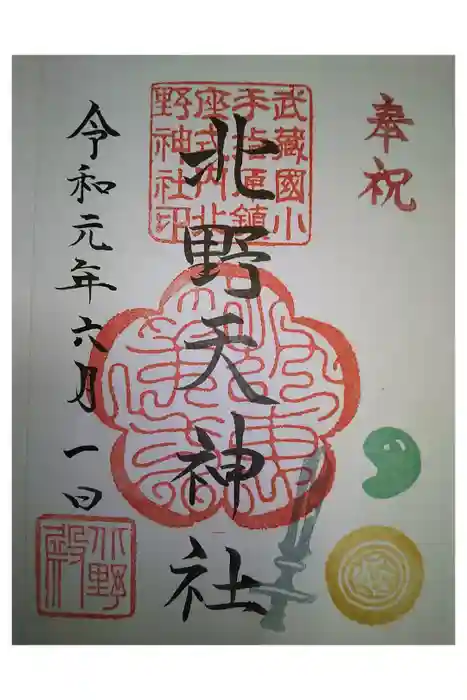 奉祝
武蔵國小
手指邑鎮
座式内北
野神社印
北野天神社
令和元年六月一日